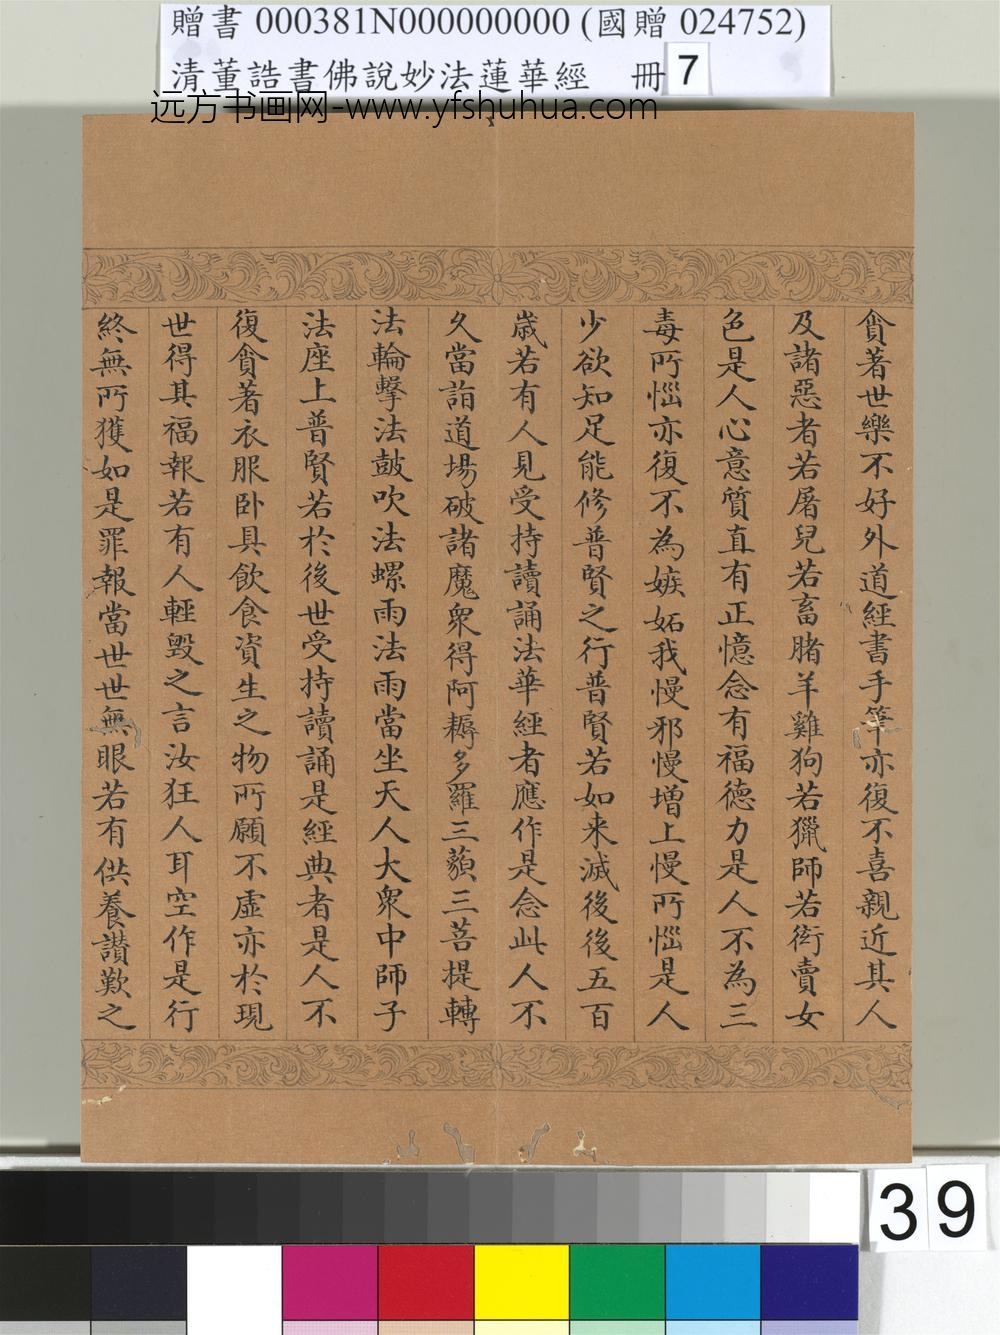 贈書 000381N000000000 (國贈 024752)
清董誥書佛說妙法蓮華經 冊 7
远方书画网-www.yfshuhua.com
貪著世樂不好外道經書手筆亦復不喜親近其人
及諸惡者若屠兒若畜豬羊雞狗若獵師若衒賣女
色是人心意質直有正憶念有福德力是人不為三
毒所惱亦復不為嫉妬我慢邪慢增上慢所惱是人
少欲知足能修普賢之行普賢若如来滅後後五百
歲若有人見受持讀誦法華經者應作是念此人不
久當詣道場破諸魔衆得阿耨多羅三藐三菩提轉
法輪擊法鼓吹法螺雨法雨當坐天人大衆中師子
法座上普賢若於後世受持讀誦是經典者是人不
復貪著衣服卧具飲食資生之物所願不虛亦於現
世得其福報若有人輕毀之言汝狂人耳空作是行
終無所獲如是罪報當世世無眼若有供養讚歎之
39